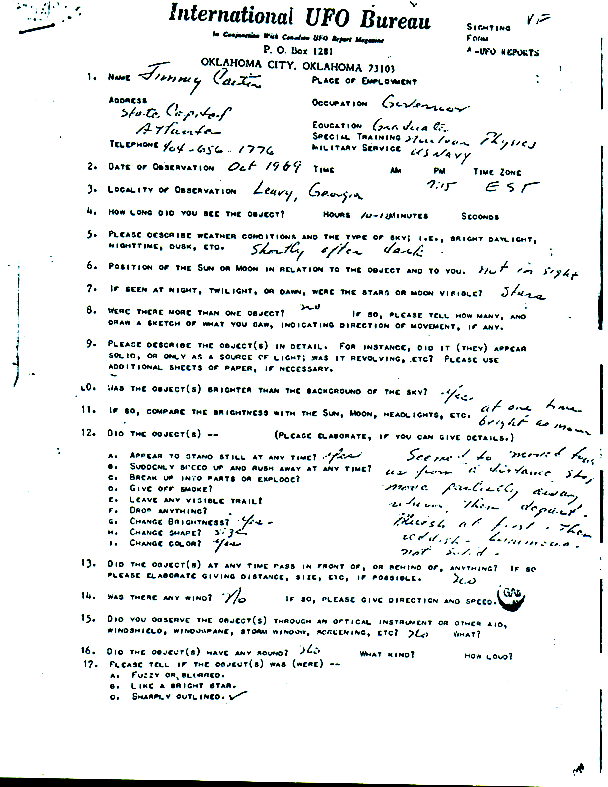 International UFO Bureau
In Cooperation With Canadian UFO Report Magazine
P. O. Box 1281
OKLAHOMA CITY, OKLAHOMA 73103
SIGHTING
FORM
-UFO REPORTS
1. NAME Jimmy Carter PLACE OF EMPLOYMENT
ADDRESS OCCUPATION Governor
State Capitol
Atlanta EDUCATION Graduate
SPECIAL TRAINING Nuclear Physics
TELEPHONE 404-656-1776 MILITARY SERVICE US NAVY
2. DATE OF OBSERVATION Oct 1969 TIME AM PM TIME ZONE
7:15 EST
3. LOCALITY OF OBSERVATION Leary, Georgia
4. HOW LONG DID YOU SEE THE OBJECT? HOURS 10-12 MINUTES SECONDS
5. PLEASE DESCRIBE WEATHER CONDITIONS AND THE TYPE OF SKY; I.E., BRIGHT DAYLIGHT,
NIGHTTIME, DUSK, ETC. Shortly after dark.
6. POSITION OF THE SUN OR MOON IN RELATION TO THE OBJECT AND TO YOU. Not in sight
7. IF SEEN AT NIGHT, TWILIGHT, OR DAWN, WERE THE STARS OR MOON VISIBLE? Stars
8. WERE THERE MORE THAN ONE OBJECT? no IF SO, PLEASE TELL HOW MANY, AND
DRAW A SKETCH OF WHAT YOU SAW, INDICATING DIRECTION OF MOVEMENT, IF ANY.
9. PLEASE DESCRIBE THE OBJECT(S) IN DETAIL. FOR INSTANCE, DID IT (THEY) APPEAR
SOLID, OR ONLY AS A SOURCE OF LIGHT; WAS IT REVOLVING, ETC? PLEASE USE
ADDITIONAL SHEETS OF PAPER, IF NECESSARY.
10. WAS THE OBJECT(S) BRIGHTER THAN THE BACKGROUND OF THE SKY? Yes
11. IF SO, COMPARE THE BRIGHTNESS WITH THE SUN, MOON, HEADLIGHTS, ETC. at one time
bright as moon
12. DID THE OBJECT(S) -- (PLEASE ELABORATE, IF YOU CAN GIVE DETAILS.)
A. APPEAR TO STAND STILL AT ANY TIME? yes Seemed to
B. SUDDENLY SPEED UP AND RUSH AWAY AT ANY TIME? us from a distance, stop
C. BREAK UP INTO PARTS OR EXPLODE? move partially away
D. GIVE OFF SMOKE?
E. LEAVE ANY VISIBLE TRAIL? return, then depart.
F. DROP ANYTHING? Bluish at first - then
G. CHANGE BRIGHTNESS? yes
H. CHANGE SHAPE? size reddish - luminous -
I. CHANGE COLOR? yes not solid -
13. DID THE OBJECT(S) AT ANY TIME PASS IN FRONT OF, OR BEHIND OF, ANYTHING? IF SO
PLEASE ELABORATE GIVING DISTANCE, SIZE, ETC, IF POSSIBLE. no
14. WAS THERE ANY WIND? No IF SO, PLEASE GIVE DIRECTION AND SPEED.
15. DID YOU OBSERVE THE OBJECT(S) THROUGH AN OPTICAL INSTRUMENT OR OTHER AID,
WINDSHIELD, WINDOWPANE, STORM WINDOW, SCREENING, ETC? No WHAT?
16. DID THE OBJECT(S) HAVE ANY SOUND? No WHAT KIND? HOW LOUD?
17. PLEASE TELL IF THE OBJECT(S) WAS (WERE) --
A. FUZZY OR BLURRED.
B. LIKE A BRIGHT STAR.
C. SHARPLY OUTLINED. ✓